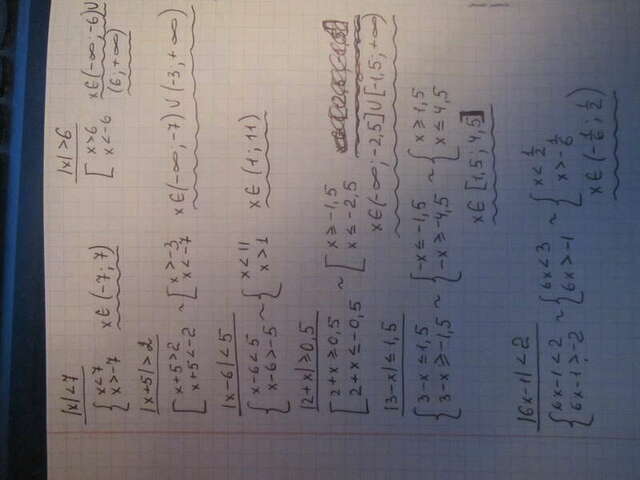 |x|<7
{ x<7
x>-7 x∈(-7; 7)
|x|>6
[ x>6
x<-6 x∈(-∞; -6)∪
(6; +∞)
|x+5|>2
[ x+5>2 ~ [ x>-3
x+5<-2 x<-7 x∈(-∞; -7)∪(-3; +∞)
|x-6|<5
{ x-6<5 ~ { x<11
x-6>-5 x>1 x∈(1; 11)
|2+x|≥0,5
[ 2+x≥0,5 ~ [ x≥-1,5
2+x≤-0,5 x≤-2,5
x∈(-∞; -2,5]∪[-1,5; +∞)
|3-x|≤1,5
{ 3-x≤1,5 ~ { -x≤-1,5 ~ { x≥1,5
3-x≥-1,5 -x≥-4,5 x≤4,5
x∈[1,5; 4,5]
|6x-1|<2
{ 6x-1<2 ~ { 6x<3 ~ { x<1/2
6x-1>-2 6x>-1 x>-1/6
x∈(-1/6; 1/2)